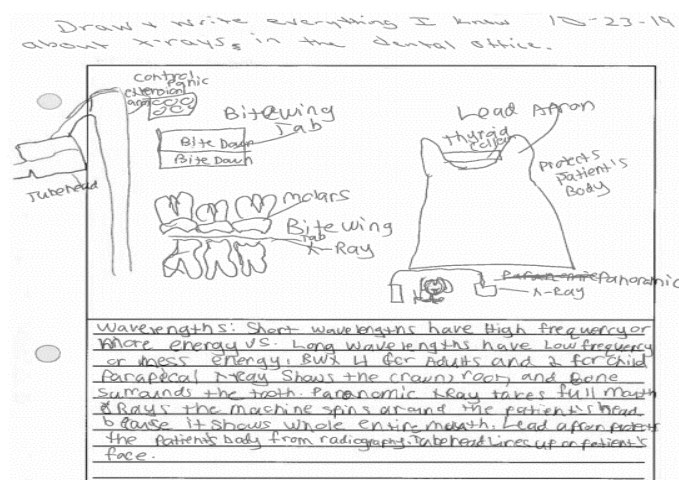 Draw & write everything I know 10-23-19
about x-rays in the dental office.
Control Panic
extension arm
Tubehead
Bitewing
Tab
Bite Down
Bite Down
Molars
Bitewing
Tab
X-Ray
Lead Apron
thyroid
collar
Protects
Patient's
Body
Panoramic
X-Ray
Wavelengths: Short wavelengths have High frequency or
More energy VS. Long wavelengths have Low frequency
or mess energy. BWX 4 for Adults and 2 for child
Parapecal xray Shows the crown, root, and bone
surrounds the tooth. Panoramic xRay takes full mouth
xRays the machine spins around the patient's head
because it shows whole entire mouth. Lead apron protects
the patient's body from radiography. Tubehead Lines up on patient's
face.